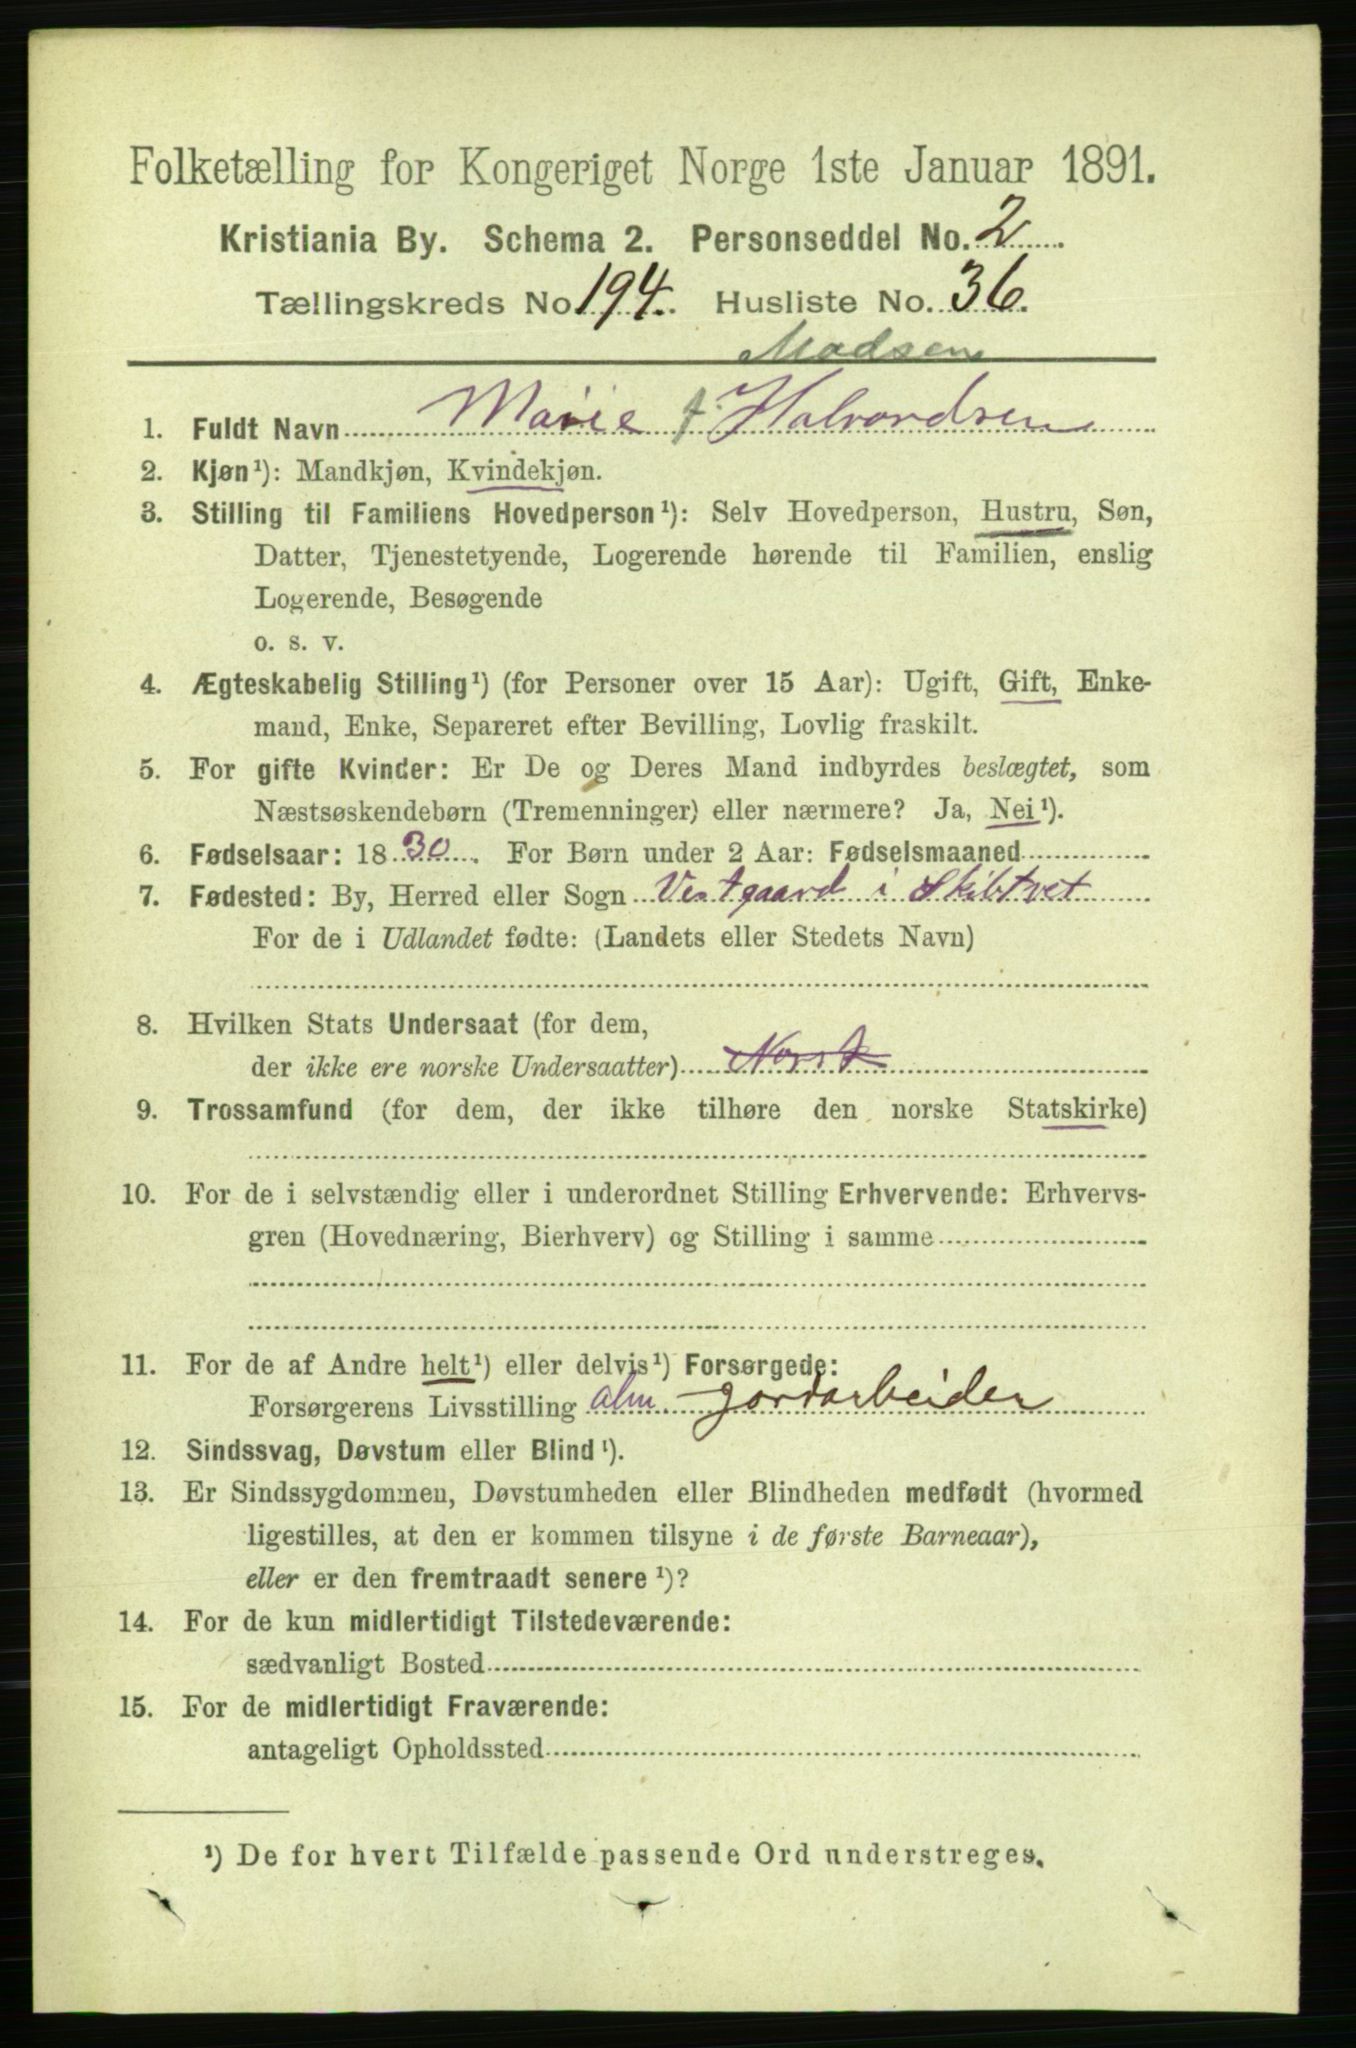 Folketælling for Kongeriget Norge 1ste Januar 1891.
Kristiania By. Schema 2. Personseddel No. 2
Tællingskreds No 194. Husliste No. 36.
Madsen
1. Fuldt Navn Marie f. Halvordsen
2. Kjøn¹): Mandkjøn, Kvindekjøn.
3. Stilling til Familiens Hovedperson¹): Selv Hovedperson, Hustru, Søn,
Datter, Tjenestetyende, Logerende hørende til Familien, enslig
Logerende, Besøgende
o. s. v.
4. Ægteskabelig Stilling¹) (for Personer over 15 Aar): Ugift, Gift, Enke-
mand, Enke, Separeret efter Bevilling, Lovlig fraskilt.
5. For gifte Kvinder: Er De og Deres Mand indbyrdes beslægtet, som
Næstsøskendebørn (Tremenninger) eller nærmere? Ja, Nei¹).
6. Fødselsaar: 18 30. For Børn under 2 Aar: Fødselsmaaned
7. Fødested: By, Herred eller Sogn Vestgaard i Skibtvet
For de i Udlandet fødte: (Landets eller Stedets Navn)
8. Hvilken Stats Undersaat (for dem,
der ikke ere norske Undersaatter) Norsk
9. Trossamfund (for dem, der ikke tilhøre den norske Statskirke)
10. For de i selvstændig eller i underordnet Stilling Erhvervende: Erhvervs-
gren (Hovednæring, Bierhverv) og Stilling i samme
11. For de af Andre helt¹) eller delvis¹) Forsørgede:
Forsørgerens Livsstilling alm jordarbeider
12. Sindssvag, Døvstum eller Blind¹).
13. Er Sindssygdommen, Døvstumheden eller Blindheden medfødt (hvormed
ligestilles, at den er kommen tilsyne i de første Barneaar),
eller er den fremtraadt senere¹)?
14. For de kun midlertidigt Tilstedeværende:
sædvanligt Bosted
15. For de midlertidigt Fraværende:
antageligt Opholdssted
¹) De for hvert Tilfælde passende Ord understreges.